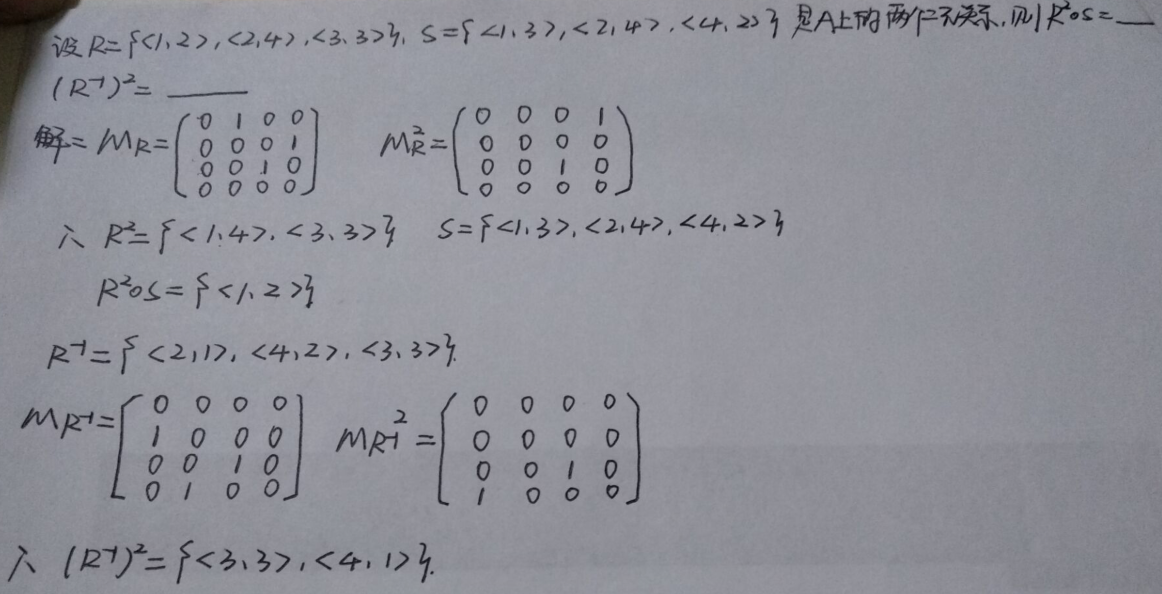 设R={<1,2>,<2,4>,<3,3>}, S={<1,3>,<2,4>,<4,2>}是A上的两个二元关系,则R²∘S=___
(R⁻¹)²= ____
解= M_R= (0 1 0 0; 0 0 0 1; 0 0 1 0; 0 0 0 0) M_R²= (0 0 0 1; 0 0 0 0; 0 0 1 0; 0 0 0 0)
∴ R²={<1,4>,<3,3>} S={<1,3>,<2,4>,<4,2>}
R²∘S={<1,2>}
R⁻¹={<2,1>,<4,2>,<3,3>}.
M_R⁻¹= [0 0 0 0; 1 0 0 0; 0 0 1 0; 0 1 0 0] M_R⁻¹²= [0 0 0 0; 0 0 0 0; 0 0 1 0; 1 0 0 0]
∴ (R⁻¹)²={<3,3>,<4,1>}.